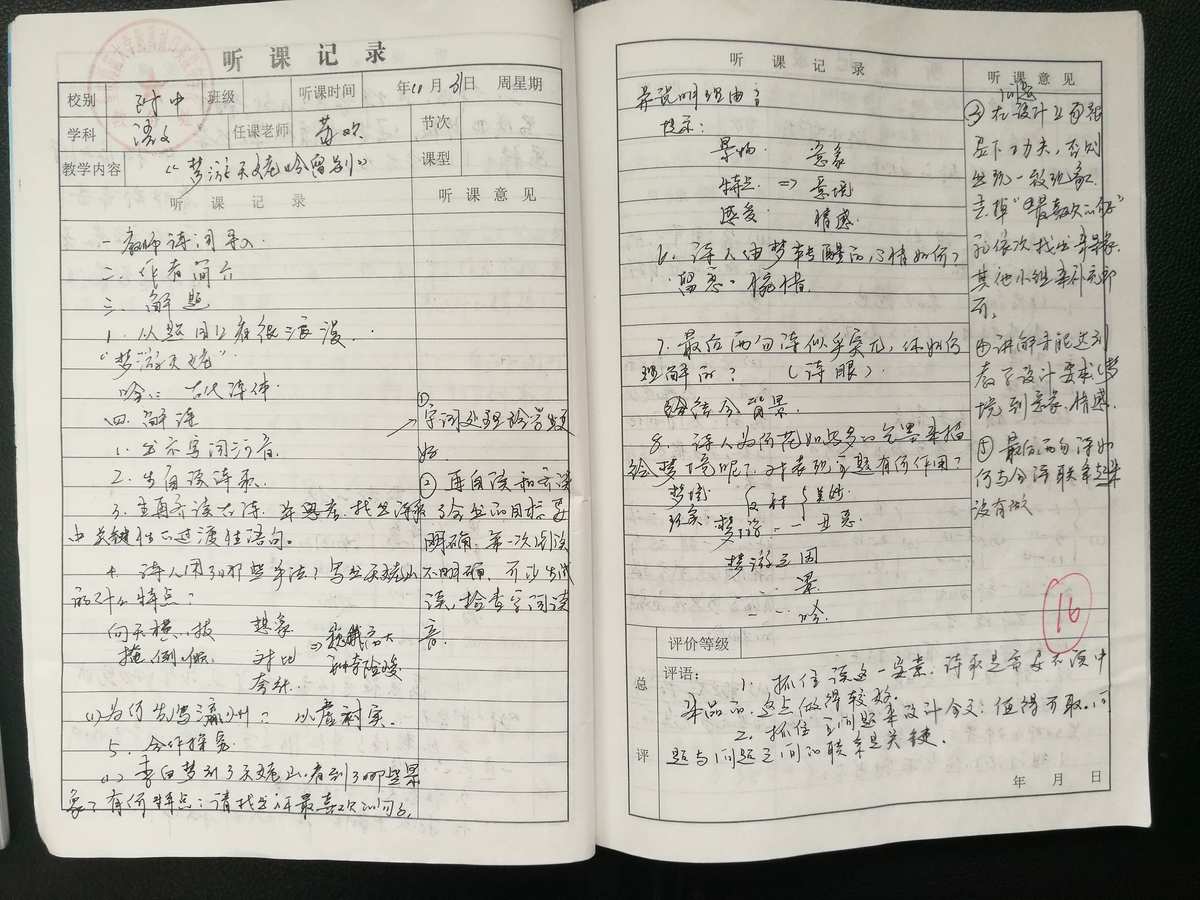 听课记录
校别 附中 班级 听课时间 年11月31日 周星期
学科 语文 任课老师 苏欢 节次
教学内容 《梦游天姥吟留别》 课型
听课记录 听课意见
一 教师诗词导入
二、作者简介
三、解题
1. 从题目上看很浪漫.
"梦游天姥"
吟:古代诗体
四、解读
1. 出示写词污音
2. 生自读诗歌
3. 再齐读古诗,并思考,找出诗歌
中关键性的过渡性语句。
4. 诗人用了哪些手法?写出天姥山
的什么特点?
向天横、拔 想象
掩、倒、倾 对比
夸张
(1)为何先写瀛洲? 以虚衬实.
5. 合作探究
(1)李白梦到了天姥山,看到了哪些景
象?有何特点?请找出你最喜欢的句子,
①
字词处理
好
② 再自读和齐读
了
明确,第一次
不明确,可少
读,检查字词读
音。
听课记录 听课意见
并说明理由?
提示:
景物. 意象
特点. => 意境
感受. 情感
6. 诗人由梦转醒的心情如何?
留恋、惋惜.
7. 最后两句诗似乎突兀,你如何
理解的? (诗眼).
结合背景.
8. 诗人为何花如此多的笔墨来描
绘梦境呢?对表现主题有何作用?
梦境 反衬
现实: 丑恶
梦游之因
景
吟
问题
③在设计上
下功夫,否则
出现一致现象.
去掉"最喜欢的句子"
依次找出景象.
其他小组来补充即
可。
④讲解未能达到
教学设计要求(梦
境到意象、情感.
⑤最后两句诗如
何与全诗联系起来
没有做
16
评价等级
总评
评语: 1. 抓住读这一要素.诗歌是
品的.这点做得较好.
2. 抓住主问题来设计全文.值得可取.问
题与问题之间的联系是关键.
年 月 日